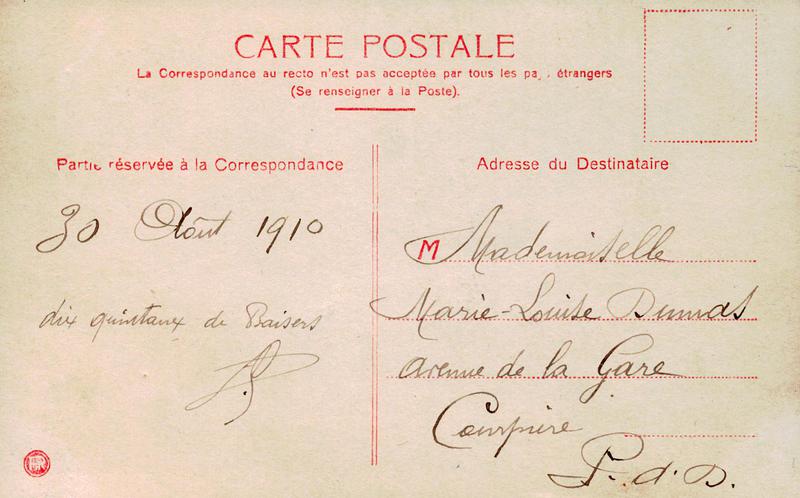 CARTE POSTALE
La Correspondance au recto n'est pas acceptée par tous les pa étrangers
(Se renseigner à la Poste).
Partie réservée à la Correspondance
30 Août 1910
dix quintaux de Baisers
Adresse du Destinataire
M Mademoiselle
Marie-Louise Dumas
avenue de la Gare
Courpière
P. d. D.